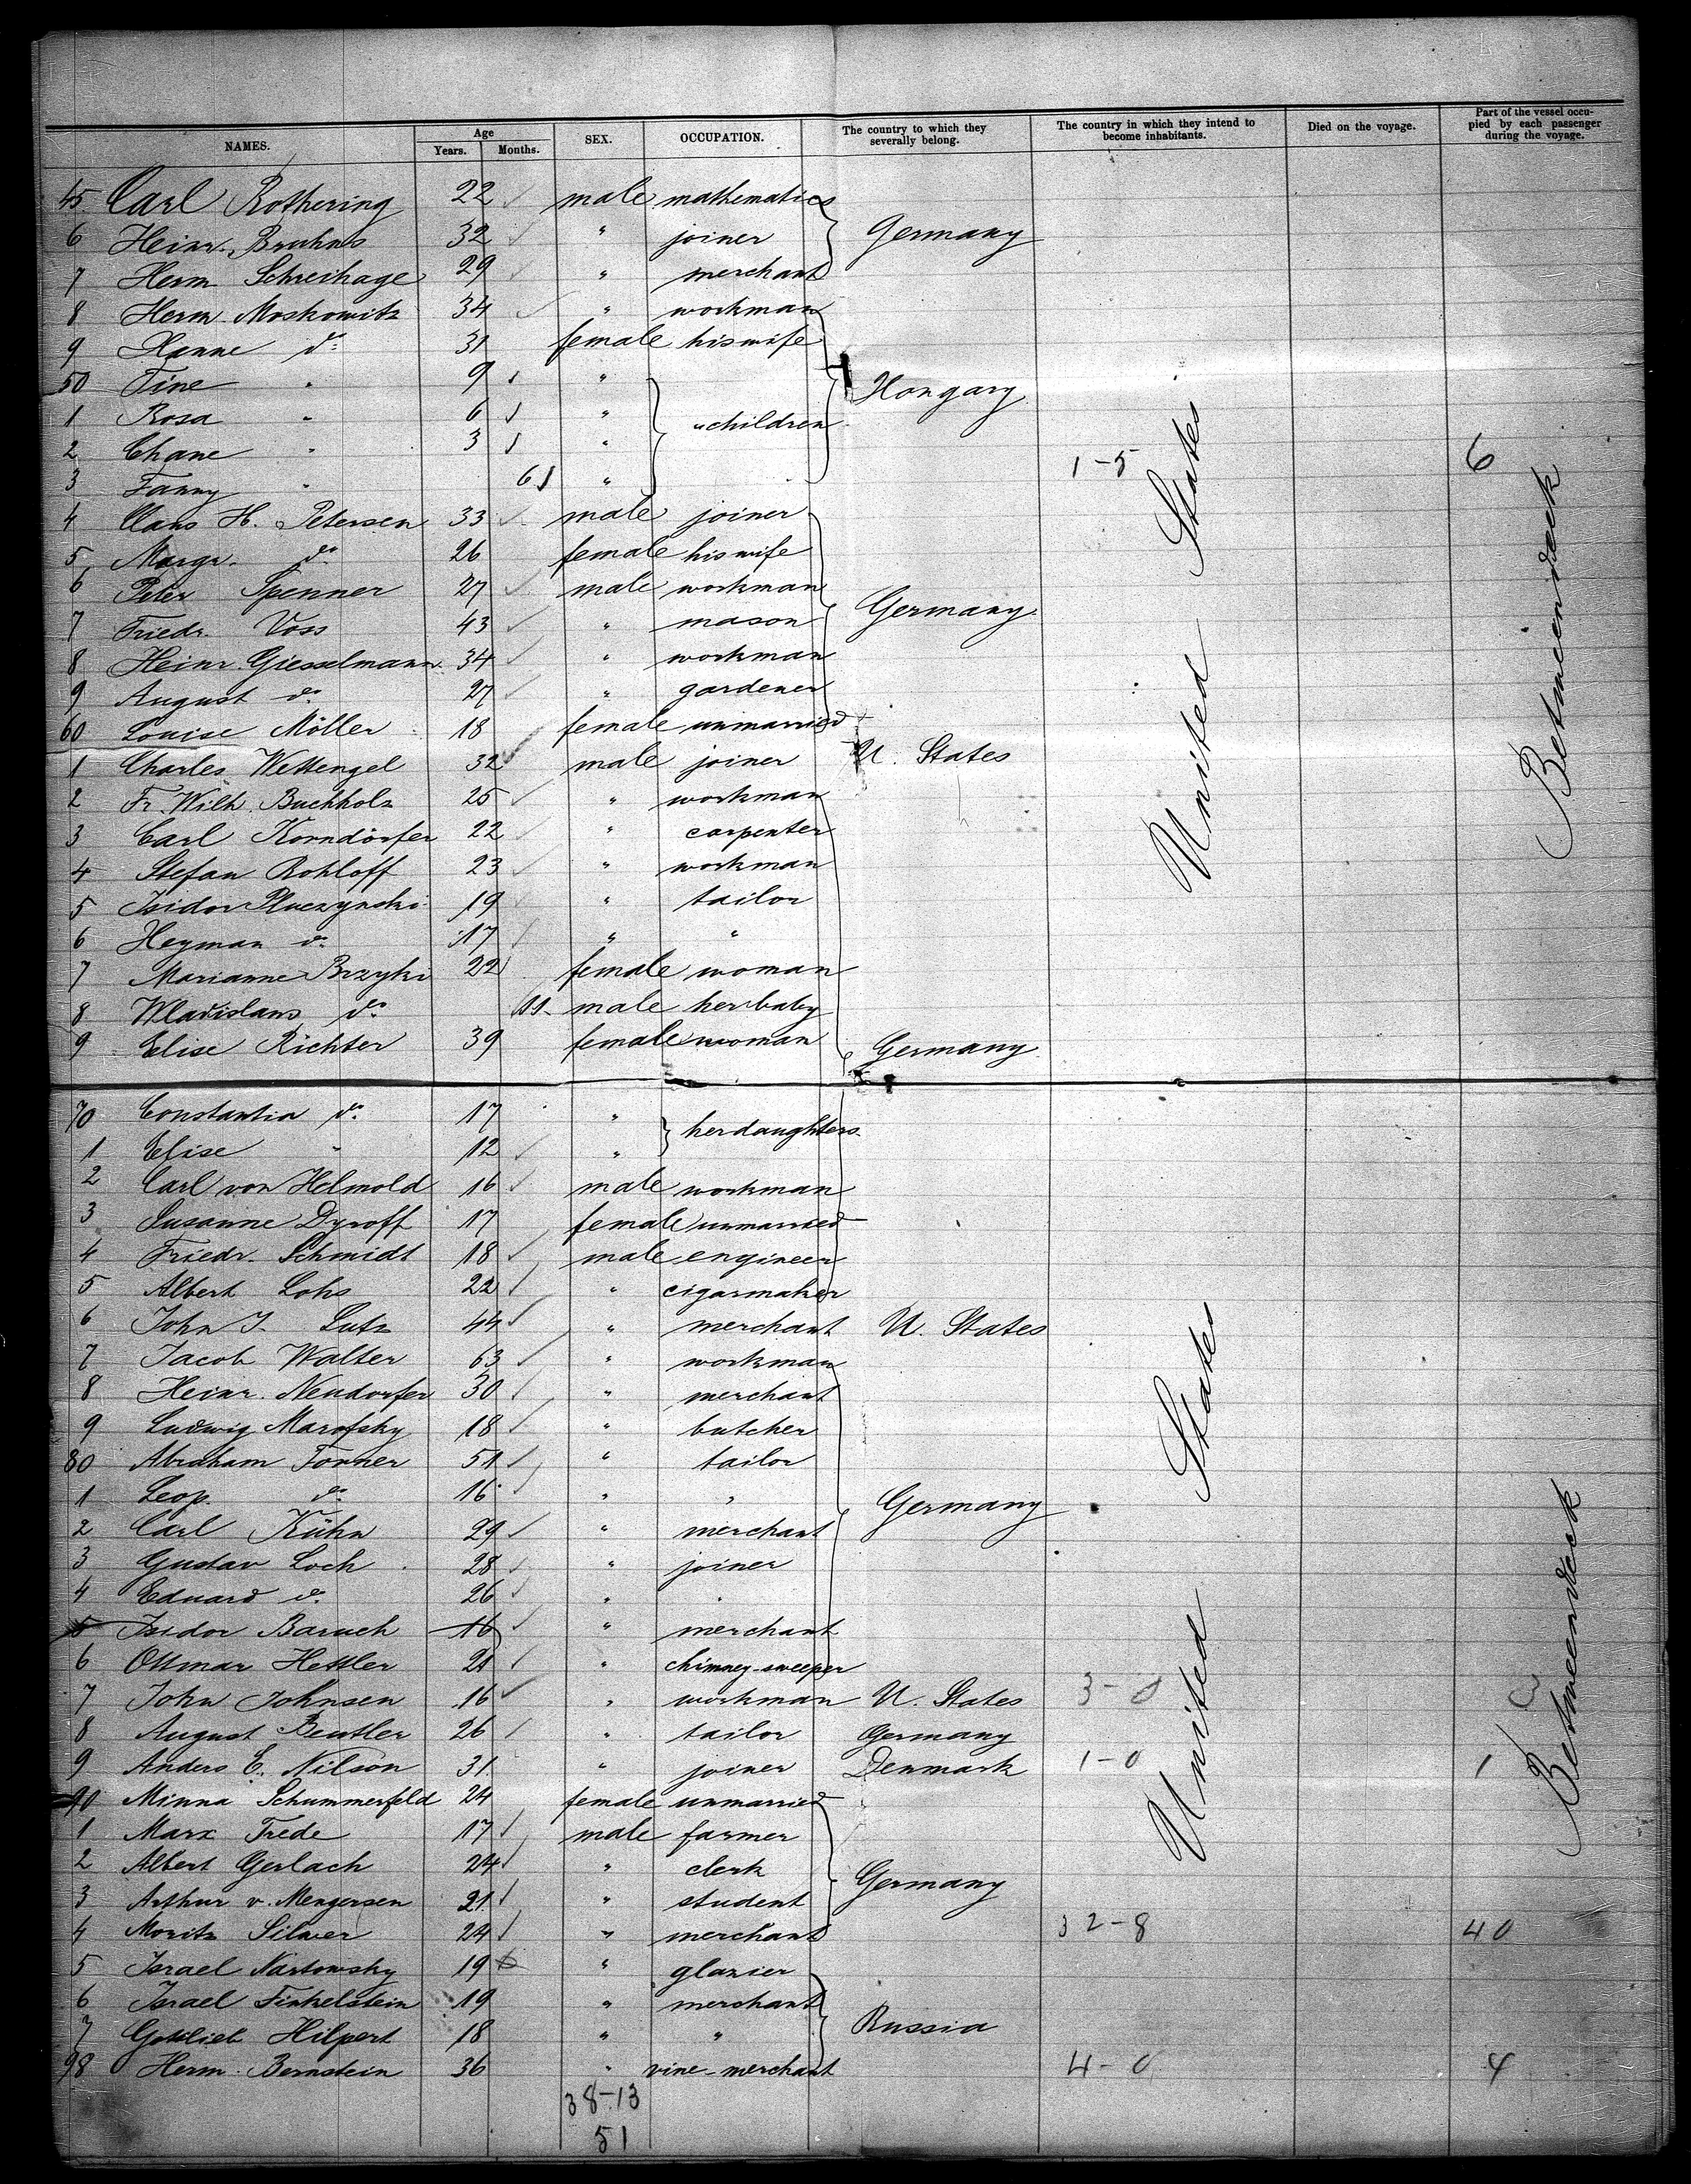 NAMES. Age Years. Months. SEX. OCCUPATION. The country to which they severally belong. The country in which they intend to become inhabitants. Died on the voyage. Part of the vessel occupied by each passenger during the voyage.
45 Carl Rothering 22 male mathematics
6 Heinr. Bruhns 32 " joiner Germany
7 Herm Schreihage 29 " merchant
8 Herm. Moskowitz 34 " workman
9 Hanne do 31 female his wife
50 Fine " 9 " Hongary
1 Rosa " 6 " children
2 Chane " 3 " 1-5 6
3 Fanny " 6 "
4 Claus H. Petersen 33 male joiner
5 Margr. do 26 female his wife
6 Peter Spenner 27 male workman Germany
7 Friedr. Voss 43 " mason
8 Heinr. Giesselmann 34 " workman
9 August do 27 " gardener
60 Louise Möller 18 female unmarried
1 Charles Wettengel 32 male joiner U. States
2 Fr. Wilh. Buchholz 25 " workman
3 Carl Korndörfer 22 " carpenter
4 Stefan Rohloff 23 " workman
5 Isidor Pluczynski 19 " tailor
6 Heyman do 17 " "
7 Marianne Brzyki 22 female woman
8 Wladislaus do 11 male her baby
9 Elise Richter 39 female woman Germany
United States
Betweendeck
70 Constantia do 17 " her daughters
1 Elise " 12 "
2 Carl von Helmold 16 male workman
3 Susanne Dyroff 17 female unmarried
4 Friedr. Schmidt 18 male engineer
5 Albert Lohs 22 " cigarmaker
6 John J. Lutz 44 " merchant U. States
7 Jacob Walter 63 " workman
8 Heinr. Neudorfer 30 " merchant
9 Ludwig Marofsky 18 " butcher
80 Abraham Forner 51 " tailor
1 Leop. do 16 " "
2 Carl Kühn 29 " merchant Germany
3 Gustav Loch 28 " joiner
4 Eduard do 26 " "
5 Isidor Baruch 16 " merchant
6 Ottmar Hettler 21 " chimney-sweeper
7 John Johnsen 16 " workman U. States 3-0 3
8 August Beutler 26 " tailor Germany
9 Anders E. Nilson 31 " joiner Denmark 1-0 1
90 Minna Schummerfeld 24 female unmarried
1 Marx Trede 17 male farmer
2 Albert Gerlach 24 " clerk Germany
3 Arthur v. Mengersen 21 " student
4 Moritz Silver 24 " merchant 32-8 40
5 Israel Nartowsky 19 " glazier
6 Israel Finkelstein 19 " merchant
7 Gottlieb Hilpert 18 " " Russia
98 Herm. Bernstein 36 " vine-merchant 4-0 4
United States
Betweendeck
38-13
51